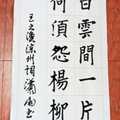 白雲間一片
何須怨楊柳
王之渙涼州詞瀟
書